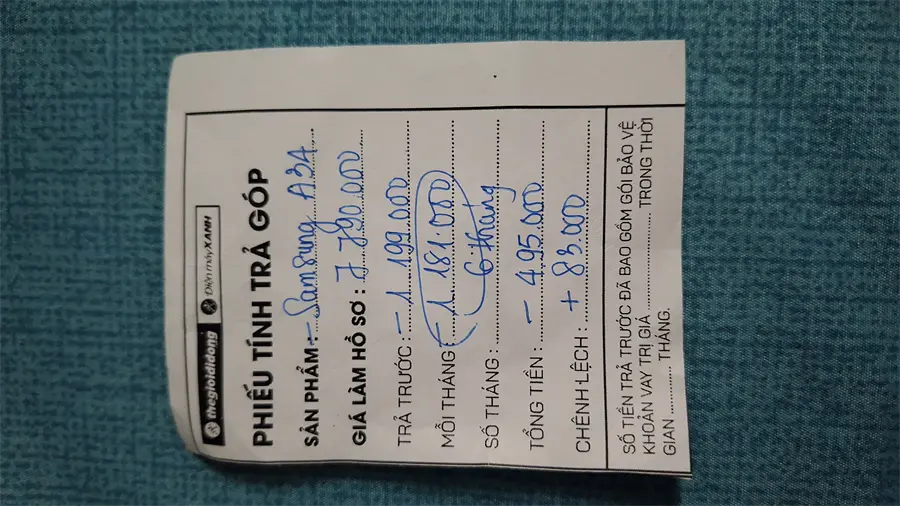 thegioididong Điện máy XANH
PHIẾU TÍNH TRẢ GÓP
SẢN PHẨM: - Samsung A34
GIÁ LÀM HỒ SƠ : 7 790.000
TRẢ TRƯỚC : - 1 199.000
MỖI THÁNG : - 1 181.000
SỐ THÁNG : 6 tháng
TỔNG TIỀN : - 495.000
CHÊNH LỆCH : + 83.000
SỐ TIỀN TRẢ TRƯỚC ĐÃ BAO GỒM GÓI BẢO VỆ
KHOẢN VAY TRỊ GIÁ .................... TRONG THỜI
GIAN ............ THÁNG.